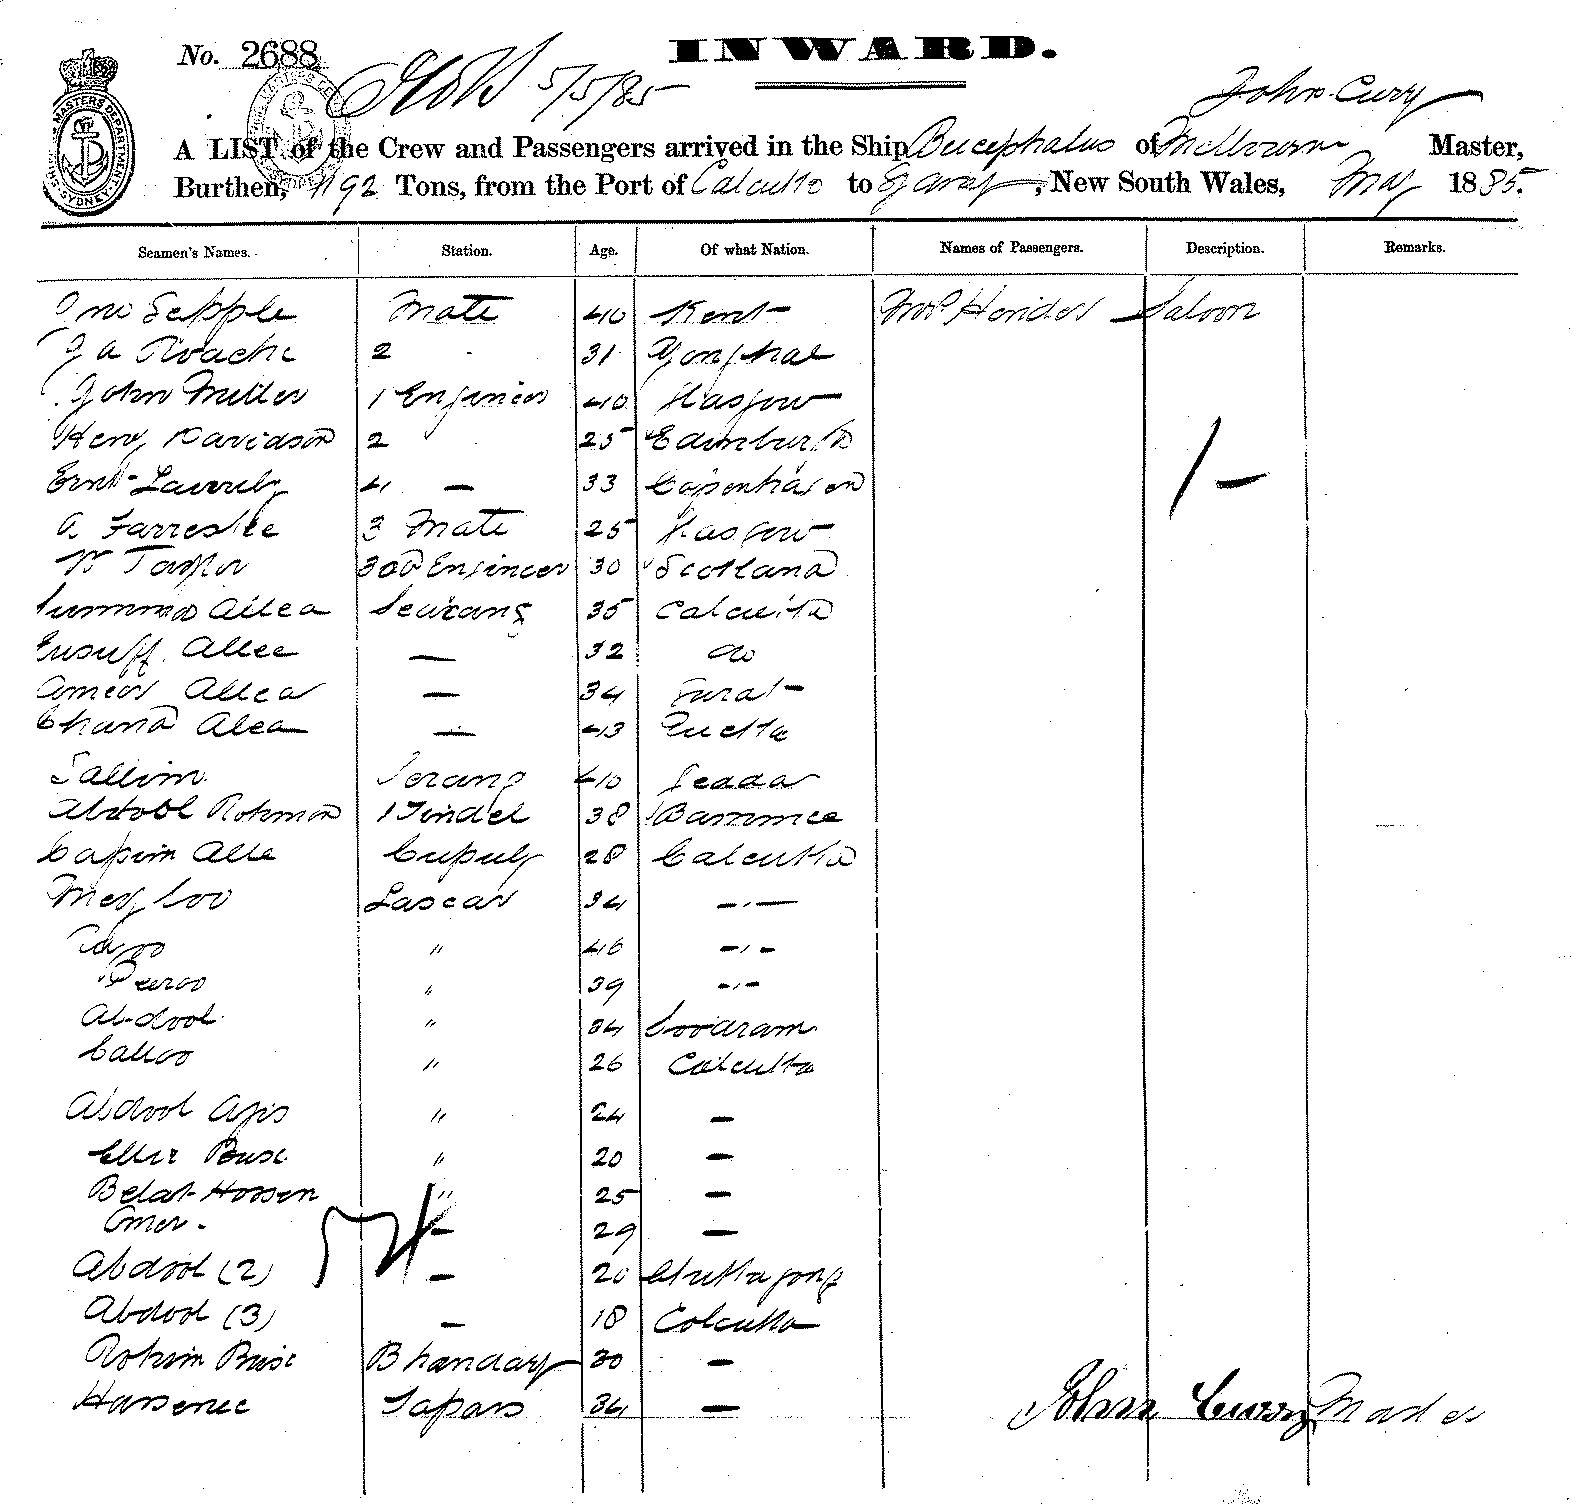 No. 2688
INWARD.
5/5/85
John Curry
A LIST of the Crew and Passengers arrived in the Ship Bucephalus of Melbourne Master,
Burthen, 1192 Tons, from the Port of Calcutta to Sydney, New South Wales, May 1885.
Seamen's Names. Station. Age. Of what Nation. Names of Passengers. Description. Remarks.
Jno Sepple Mate 40 Kent Saloon
J a Roache 2 31 Youghal
John Miller 1 Engineer 40 Glasgow
Heny Davidson 2 25 Edinburgh
4 — 33 Copenhagen
3 Mate 25 Glasgow
W Taylor 3rd Engineer 30 Scotland
Allea Seacang 35 Calcutta
Eusuff Allee — 32 do
Ameer Allea — 34 Surat
Chand Alea — 43
Sallim Serang 40
Abdool Rohman 1 Tindel 38
Cassim Alle 28 Calcutta
Lascar 34 —"—
" 46 —"—
Peeroo " 39 —"—
Abdool " 34
Calloo " 26 Calcutta
Abdool Agis " 24 —
Ellie Buse " 20 —
Belat Hossen " 25 —
Omer — 29 —
Abdool (2) — 20 Chittagong
Abdool (3) — 18 Calcutta
Rohim Buse Bhandary 30 —
Hassenee Topass 34 —
1/-
John Curry Master